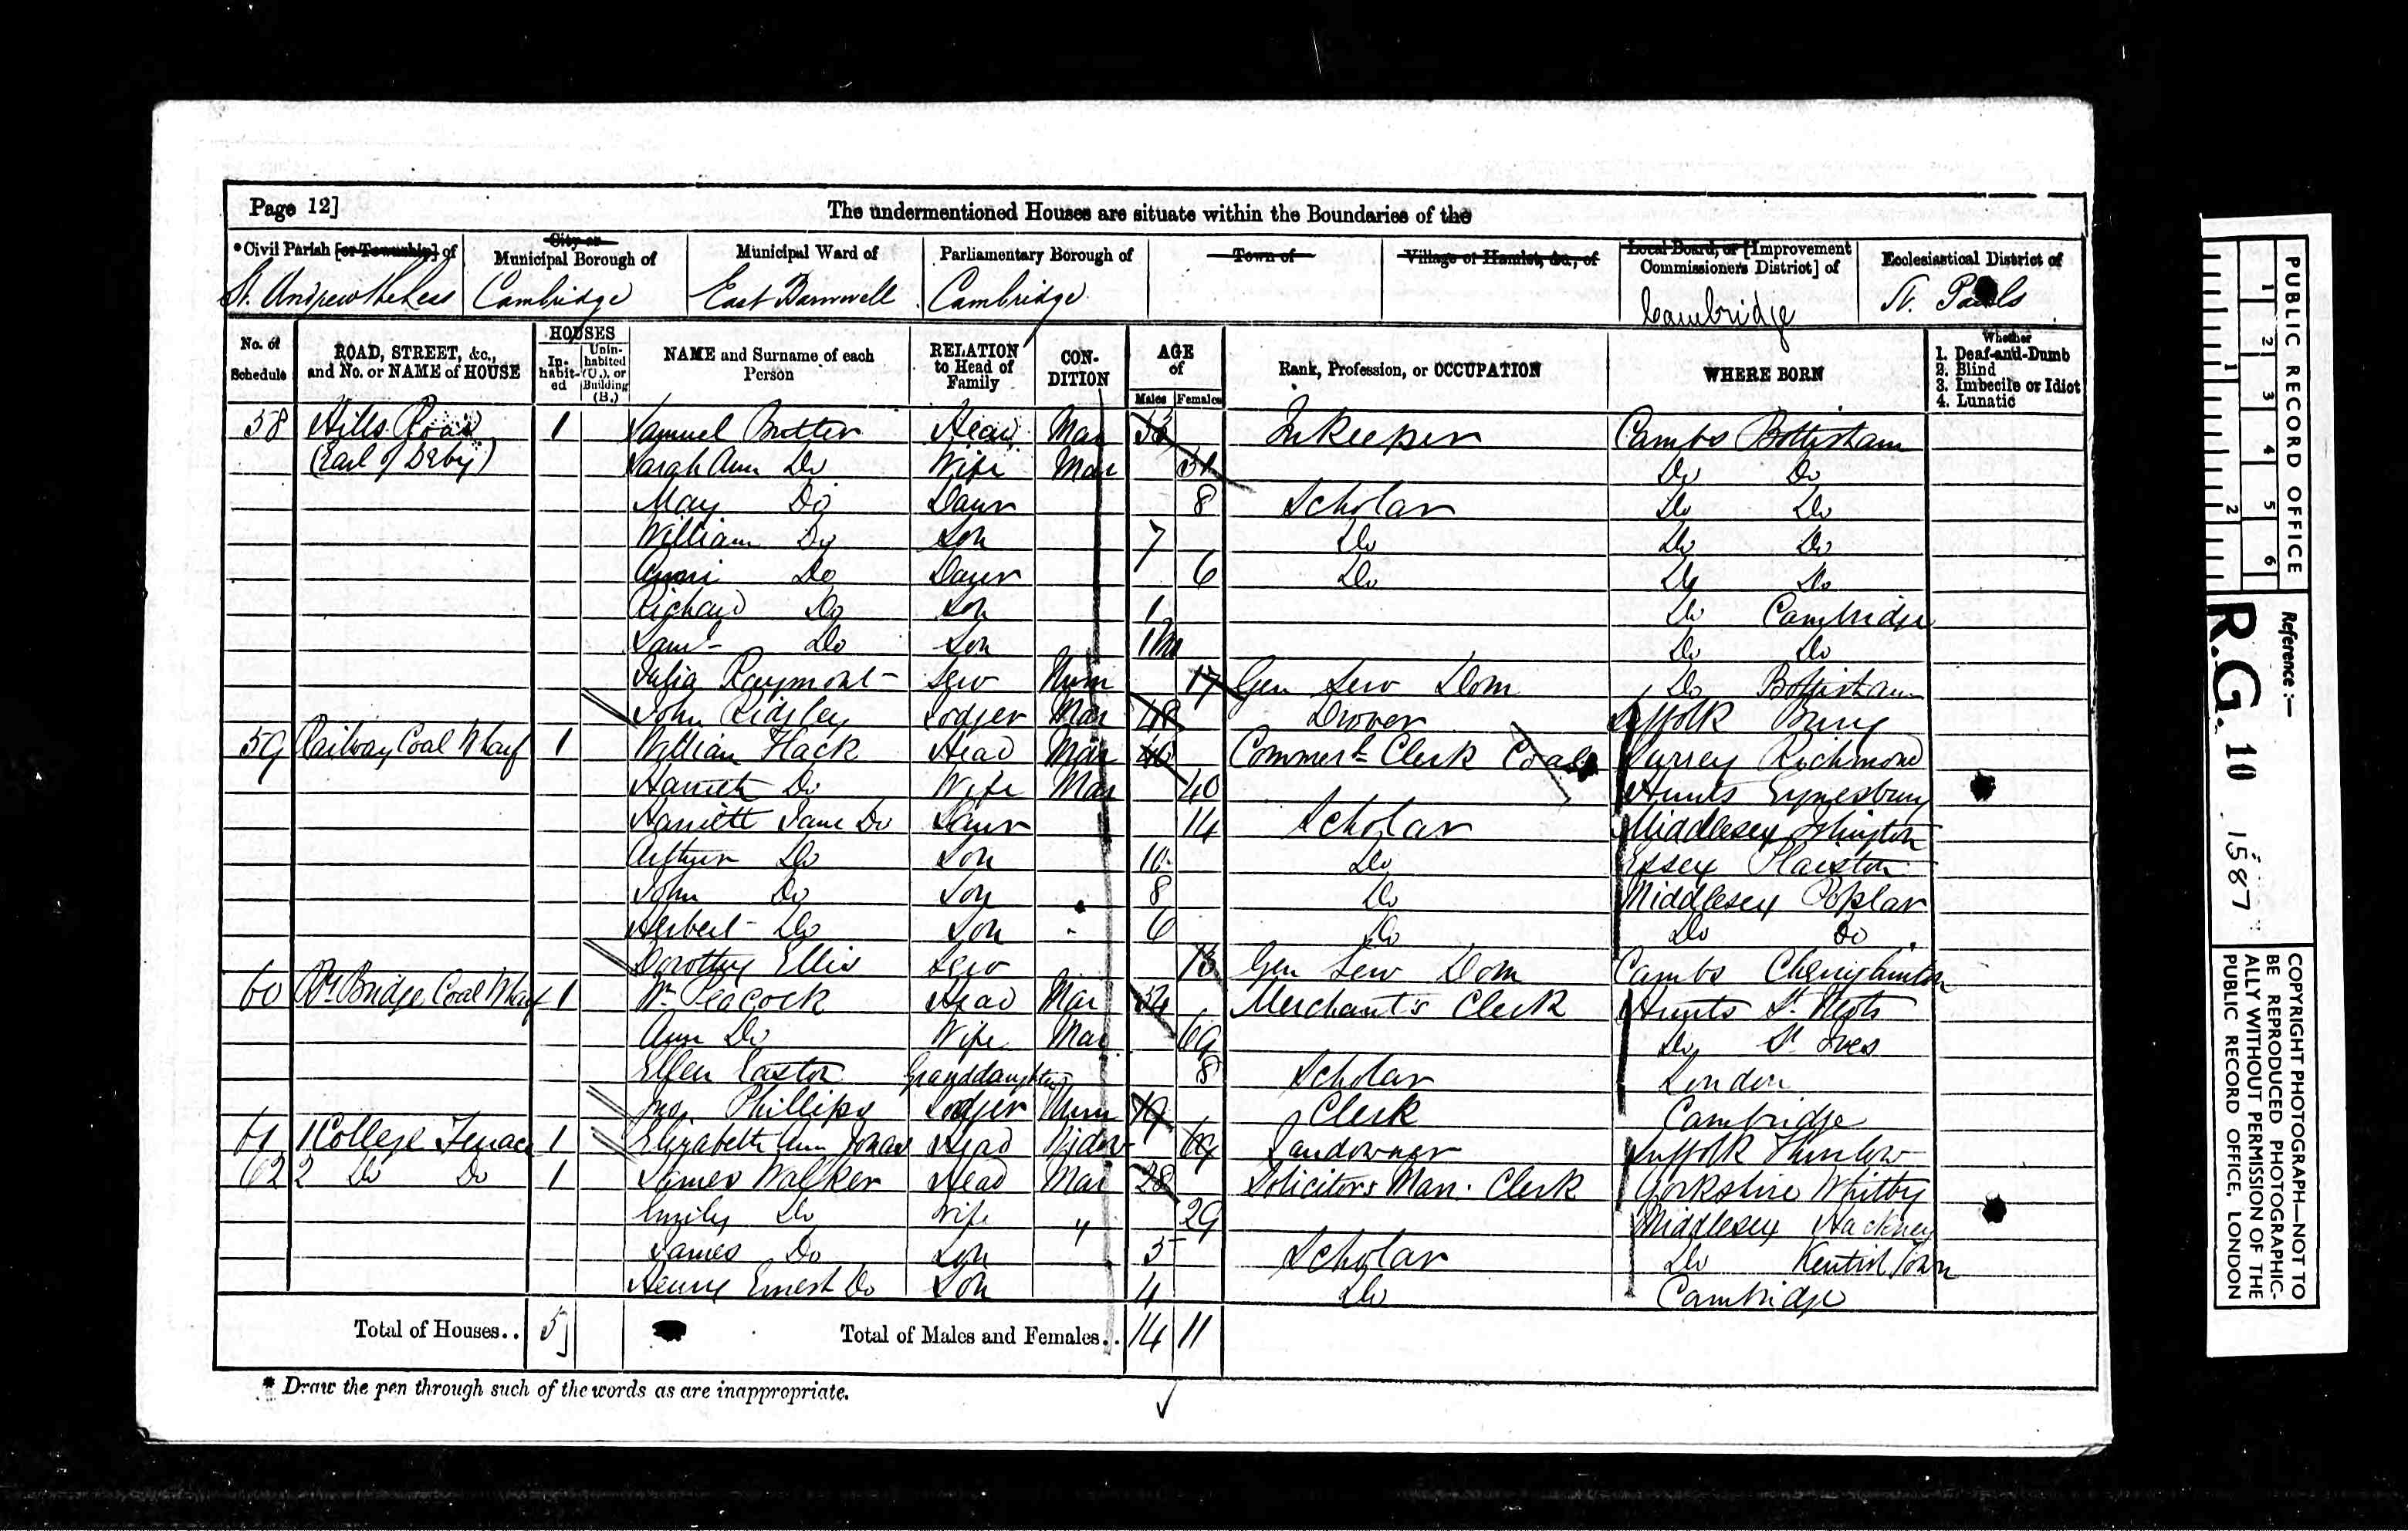 Page 12]
The undermentioned Houses are situate within the Boundaries of the
*Civil Parish [or Township] of
City or Municipal Borough of
Municipal Ward of
Parliamentary Borough of
Town of
Village or Hamlet, &c., of
Local Board, or [Improvement Commissioners District] of
Ecclesiastical District of
St. Andrew the Less Cambridge East Barnwell Cambridge Cambridge St. Pauls
No. of Schedule
ROAD, STREET, &c., and No. or NAME of HOUSE
HOUSES
In-habit-ed
Unin-habited (U.), or Building (B.)
NAME and Surname of each Person
RELATION to Head of Family
CON-DITION
AGE of
Males Females
Rank, Profession, or OCCUPATION
WHERE BORN
Whether
1. Deaf-and-Dumb
2. Blind
3. Imbecile or Idiot
4. Lunatic
58 Hills Road 1 Samuel Head Mar Inkeeper Cambs Bottisham
(Earl of Derby) Sarah Ann Do Wife Mar 31 Do Do
May Do Daur 8 Scholar Do Do
William Do Son 7 Do Do Do
Do Daur 6 Do Do Do
Richard Do Son 1 Do Cambridge
Saml Do Son 1m Do Do
Julia Raymont Serv Unm 17 Gen Serv Dom Do Bottisham
John Ridgley Lodger Mar 48 Drover Suffolk Bury
59 Railway Coal Wharf 1 William Flack Head Mar 40 Commerl Clerk Coals Surrey Richmond
Harriett Do Wife Mar 40 Hunts Eynesbury
Harriett Jane Do Daur 14 Scholar Middlesex Islington
Arthur Do Son 10 Do Essex Plaistow
John Do Son 8 Do Middlesex Poplar
Herbert Do Son 6 Do Do Do
Dorothy Ellis Serv 13 Gen Serv Dom Cambs Cherryhinton
60 Bridge Coal Wharf 1 Wm Peacock Head Mar 54 Merchant's Clerk Hunts St Neots
Ann Do Wife Mar 69 Do St Ives
Ellen Easton Granddaughter 8 Scholar London
Jno Phillips Lodger Unm 19 Clerk Cambridge
61 1 College Terrace 1 Elizabeth Ann Jonas Head Widow Landowner Suffolk Thurlow
62 2 Do Do 1 James Walker Head Mar 28 Solicitors Man. Clerk Yorkshire Whitby
Emily Do Wife " 29 Middlesex Hackney
James Do Son 5 Scholar Do Kentish Town
Henry Ernest Do Son 4 Do Cambridge
Total of Houses.. 5 Total of Males and Females.. 14 11
* Draw the pen through such of the words as are inappropriate.
PUBLIC RECORD OFFICE
1 2 3 4 5 6
1 2
Reference:-
R.G. 10 1587
COPYRIGHT PHOTOGRAPH—NOT TO
BE REPRODUCED PHOTOGRAPHIC-
ALLY WITHOUT PERMISSION OF THE
PUBLIC RECORD OFFICE, LONDON